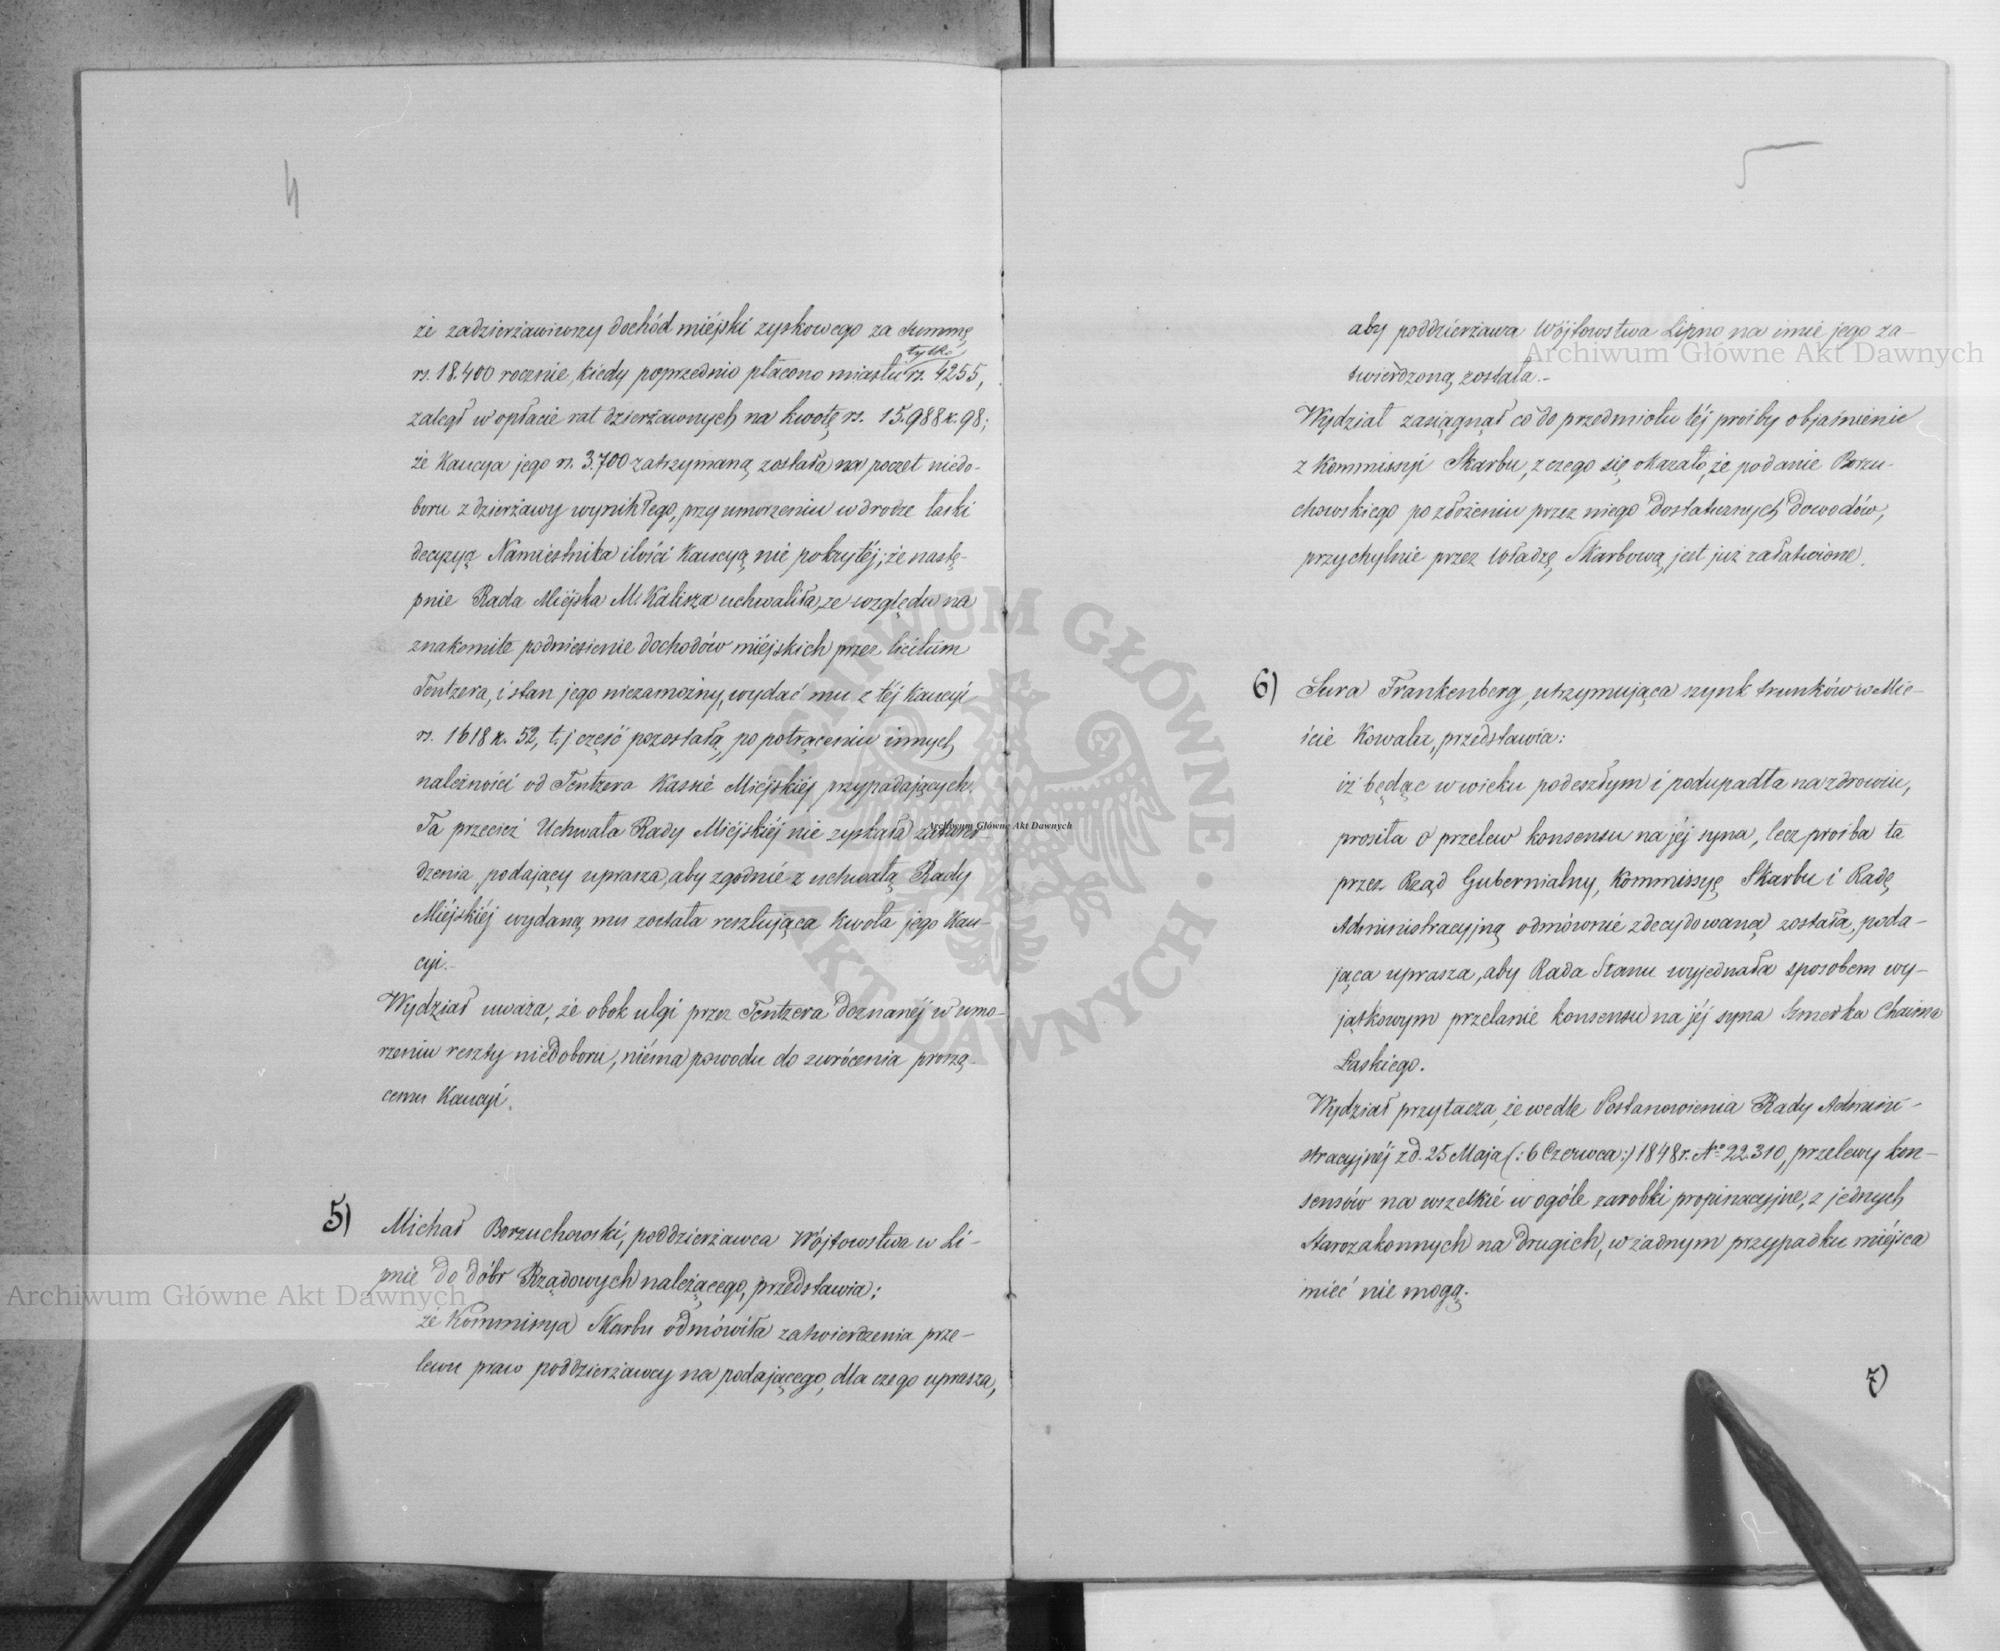 4
że zadzierżawiwszy dochód miéjski zyskowego za summę
rs. 18.400 rocznie, kiedy poprzednio płacono miastu tylko rs. 4255,
zaległ w opłacie rat dzierżawnych na kwotę rs. 15.988 k. 98;
że Kaucya jego rs. 3.700 zatrzymaną została na poczet niedo-
boru z dzierżawy wynikłego, przy umorzeniu w drodze łaski
decyzyą Namiestnika ilości Kaucyą nie pokrytéj; że nastę-
pnie Rada Miéjska M. Kalisza uchwaliła, ze względu na
znakomite podniesienie dochodów miéjskich przez licitum
Tentzera, i stan jego niezamożny, wydać mu z téj Kaucyi
rs. 1618 k. 52, t. j. część pozostałą, po potrąceniu innych
należności od Tentzera Kassie Miéjskiéj przypadających.
Ta przecież Uchwała Rady Miéjskiéj nie zyskała zatwier-
dzenia, podający uprasza, aby zgodnie z uchwałą Rady
Miéjskiéj wydaną mu została resztująca kwota jego Kau-
cyi.-
Wydział uważa, że obok ulgi przez Tentzera doznanéj w umo-
rzeniu reszty niedoboru, niéma powodu do zwrócenia proszą-
cemu Kaucyi.
5) Michał Borzuchowski, poddzierżawca Wójtowstwa w Li-
pnie do dóbr Rządowych należącego, przedstawia:
że Kommissya Skarbu odmówiła zatwierdzenia prze-
lewu praw poddzierżawcy na podającego, dla czego uprasza,
5
aby poddzierżawa Wójtowstwa Lipno na imie jego za-
twierdzoną została.-
Wydział zasiągnął co do przedmiotu téj prośby objaśnienie
z Kommissyi Skarbu, z czego się okazało, że podanie Borzu-
chowskiego po złożeniu przez niego dostatecznych dowodów,
przychylnie przez Władzę Skarbową jest już załatwione.
6) Sura Frankenberg, utrzymująca szynk trunków w Mie-
ście Kowalu, przedstawia:
iż będąc w wieku podeszłym i podupadła na zdrowiu,
prosiła o przelew konsensu na jéj syna, lecz prośba ta
przez Rząd Gubernialny, Kommissyę Skarbu i Radę
Administracyjną odmównie zdecydowaną została, poda-
jąca uprasza, aby Rada Stanu wyjednała sposobem wy-
jątkowym przelanie konsensu na jéj syna Szmerka Chaima
Łaskiego.
Wydział przytacza, że wedle Postanowienia Rady Admini-
stracyjnéj z d. 25 Maja (: 6 Czerwca :) 1848 r. No 22.310, przelewy kon-
sensów na wszelkie w ogóle zarobki propinacyjne, z jednych
Starozakonnych na drugich, w żadnym przypadku miéjsca
mieć nie mogą.
7)
Archiwum Główne Akt Dawnych
Archiwum Główne Akt Dawnych
Archiwum Główne Akt Dawnych
ARCHIWUM GŁÓWNE · AKT DAWNYCH ·